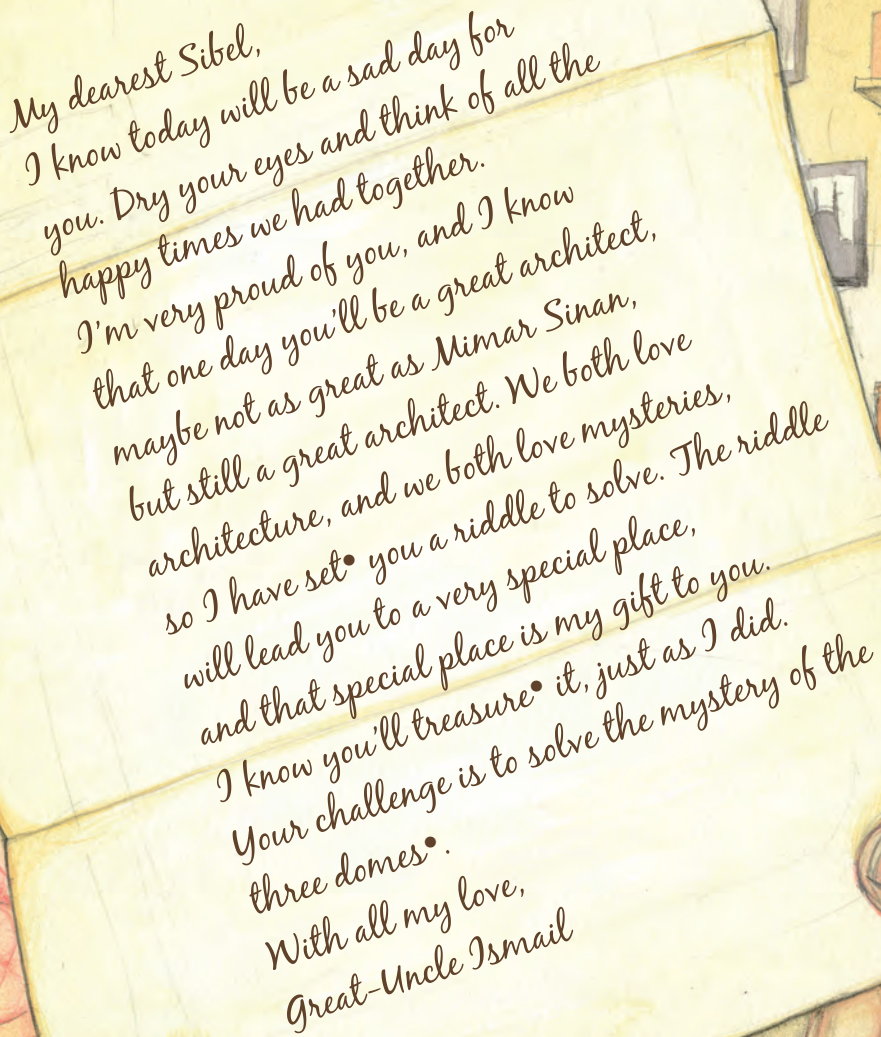 My dearest Sibel,
I know today will be a sad day for
you. Dry your eyes and think of all the
happy times we had together.
I'm very proud of you, and I know
that one day you'll be a great architect,
maybe not as great as Mimar Sinan,
but still a great architect. We both love
architecture, and we both love mysteries,
so I have set• you a riddle to solve. The riddle
will lead you to a very special place,
and that special place is my gift to you.
I know you'll treasure• it, just as I did.
Your challenge is to solve the mystery of the
three domes•.
With all my love,
Great-Uncle Ismail